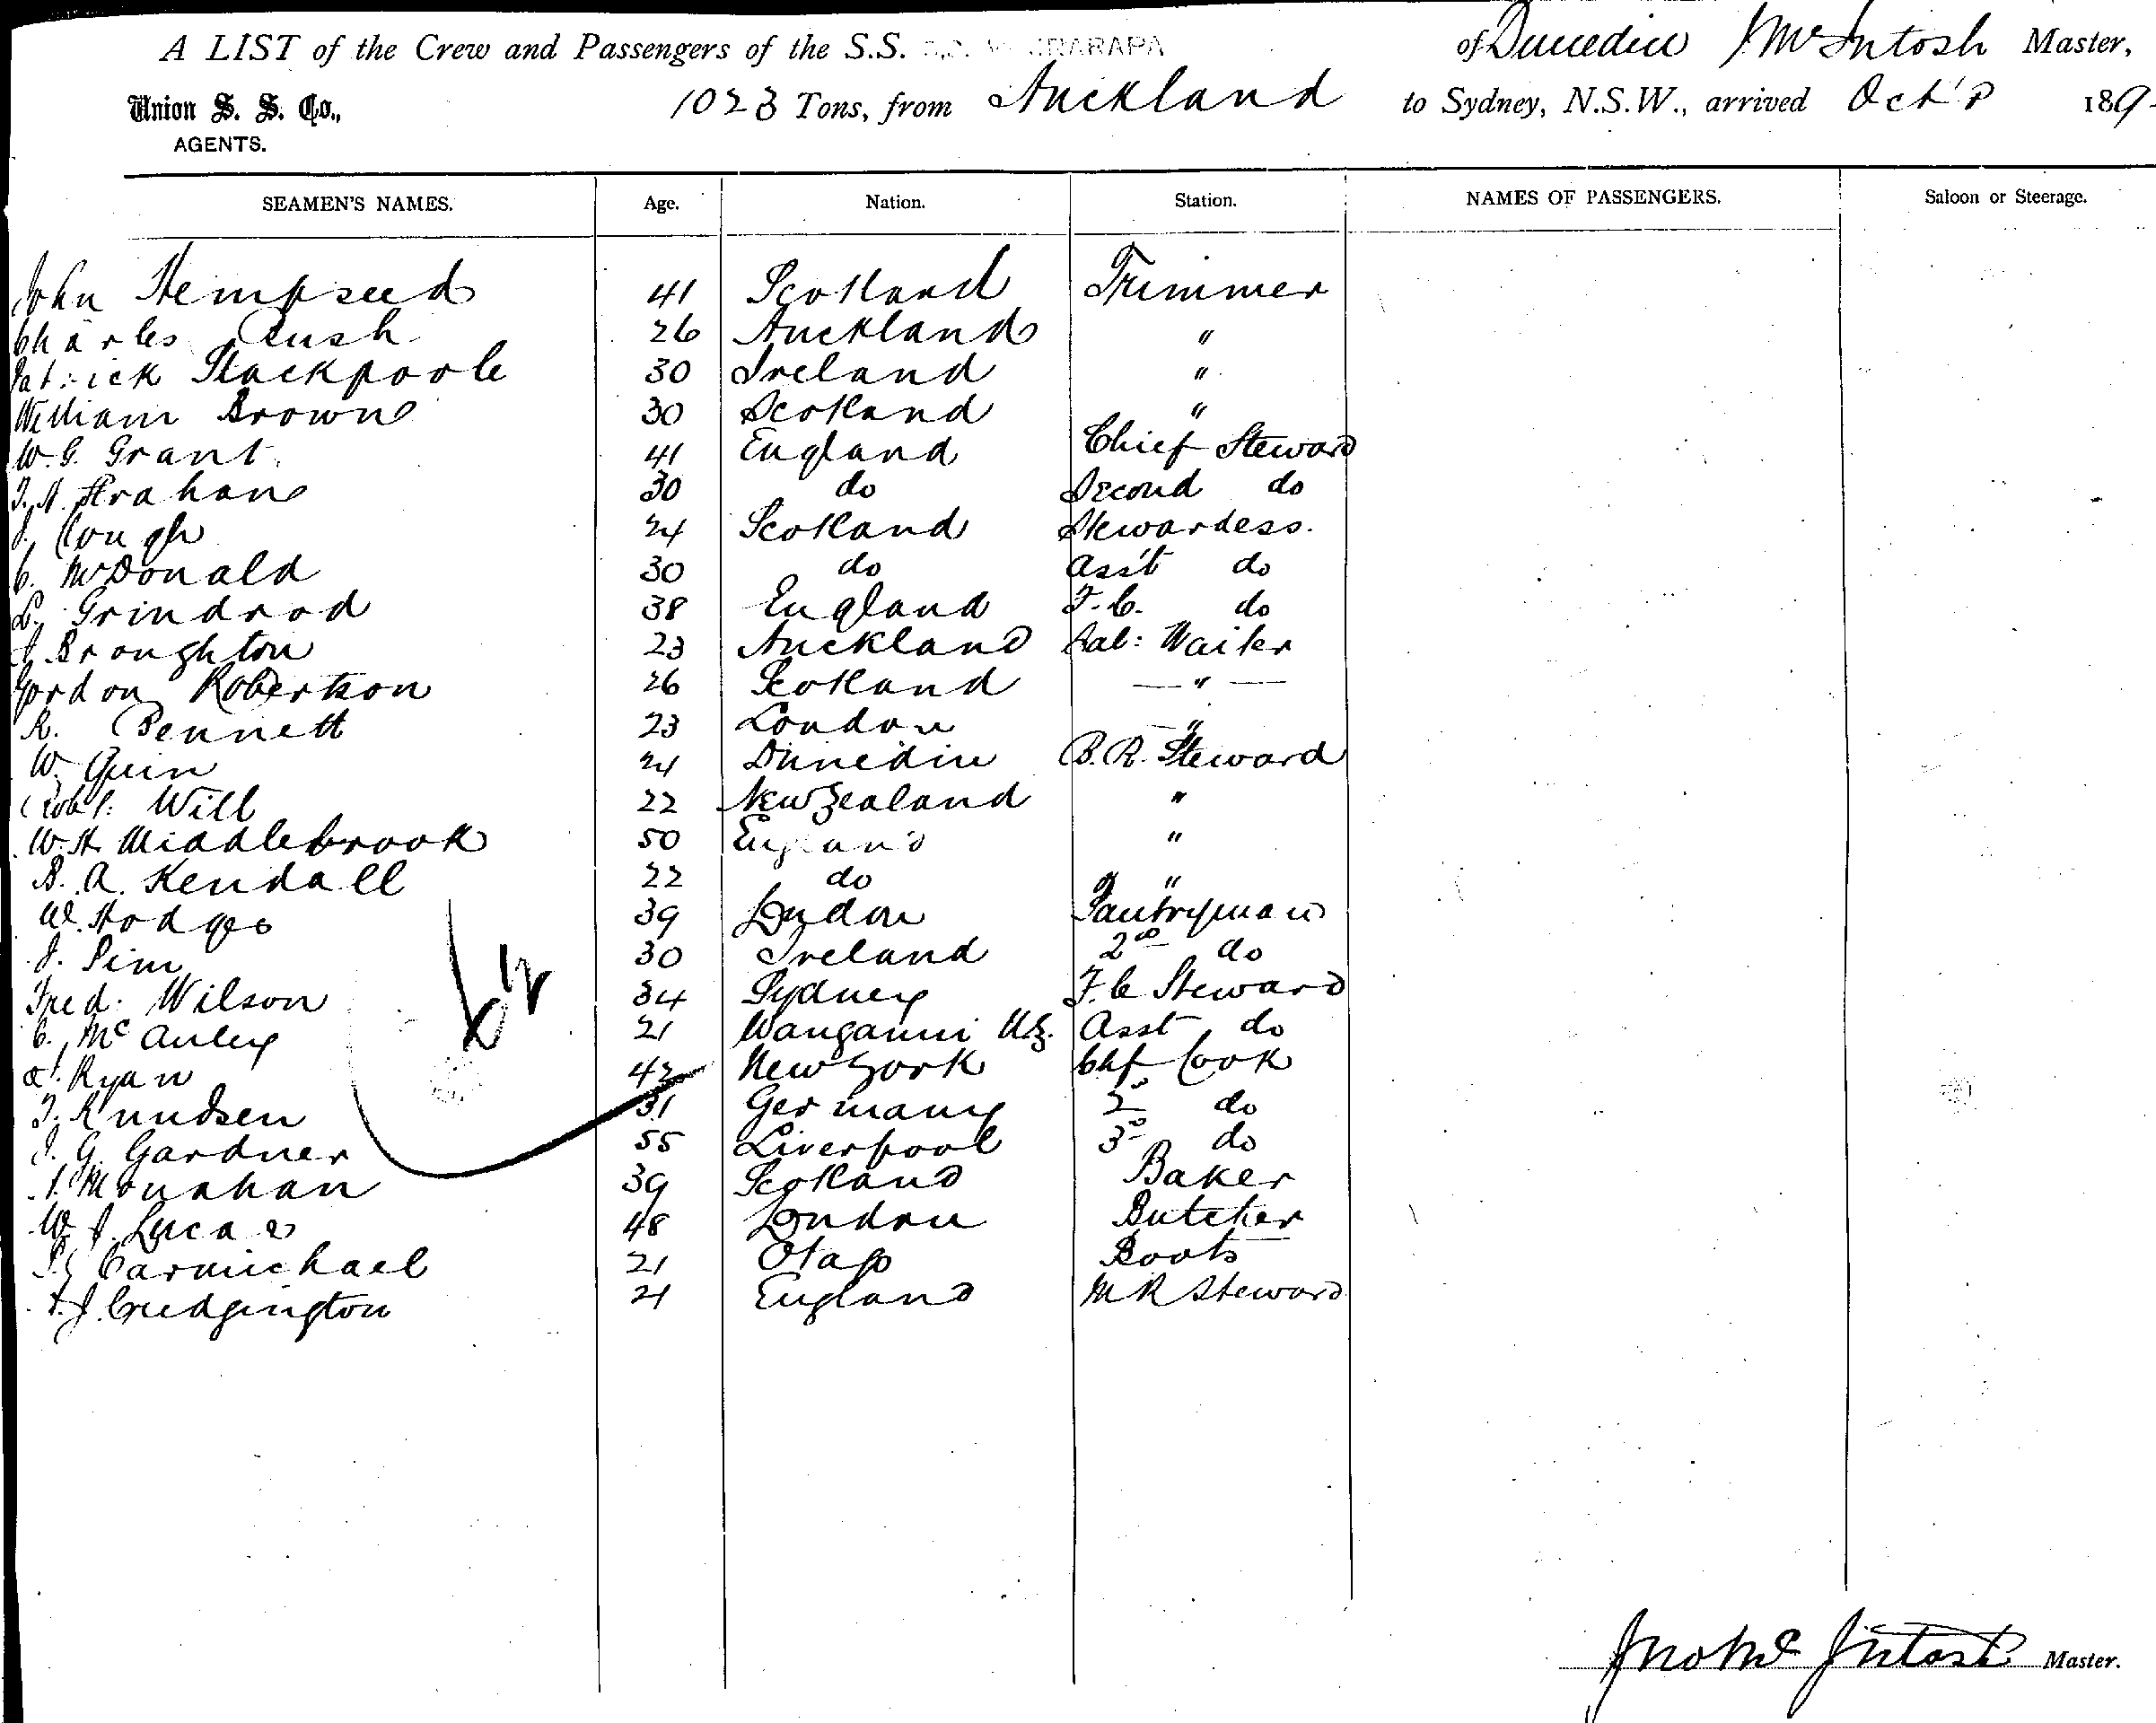 A LIST of the Crew and Passengers of the S.S. S.S. WAIRARAPA of Dunedin J McIntosh Master,
Union S. S. Co., 1023 Tons, from Auckland to Sydney, N.S.W., arrived Oct 189
AGENTS.
SEAMEN'S NAMES. Age. Nation. Station. NAMES OF PASSENGERS. Saloon or Steerage.
John Hempseed 41 Scotland Trimmer
Charles Rush 26 Auckland "
Patrick Stackpoole 30 Ireland "
William Brown 30 Scotland "
W. G. Grant. 41 England Chief Steward
T. A. Strahan 30 do Second do
J. Cough 24 Scotland Stewardess.
C. McDonald 30 do Ass't do
L. Grindrod 38 England F. C. do
J Broughton 23 Auckland Sal: Waiter
Gordon Robertson 26 Scotland — " —
R. Bennett 23 London — "
W. Quin 24 Dunedin B. R. Steward
Robt. Will 22 New Zealand "
W. H. Middlebrook 50 England "
B. A. Kendall 22 do " "
W. Hodges 39 London Pantryman
J. Sim 30 Ireland 2nd do
Fred. Wilson 34 Sydney F. C Steward
C. McAuley 21 Wanganui N.Z. Asst do
Ryan 42 New York Chf Cook
T. Knudsen 31 Germany 2nd do
J. G. Gardner 55 Liverpool 3rd do
Monahan 39 Scotland Baker
W. J. Lucas 48 London Butcher
Carmichael 21 Otago Boots
J. Cridgington 21 England M R Steward
Jno Mc Intosh Master.